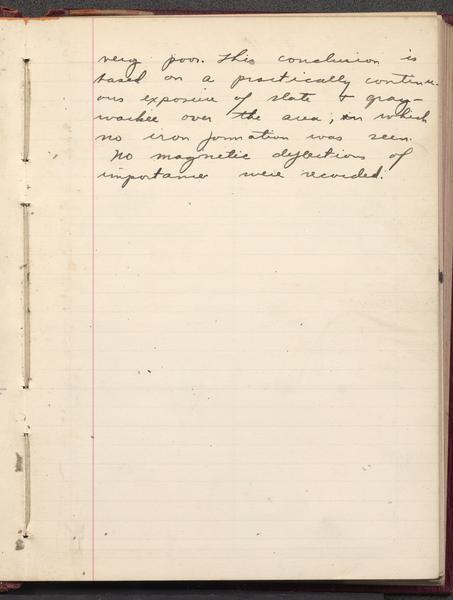 very poor. This conclusion is
based on a practically continu-
ous exposure of slate & gray-
wacke over the area, in which
no iron formation was seen.
No magnetic deflections of
importance were recorded.